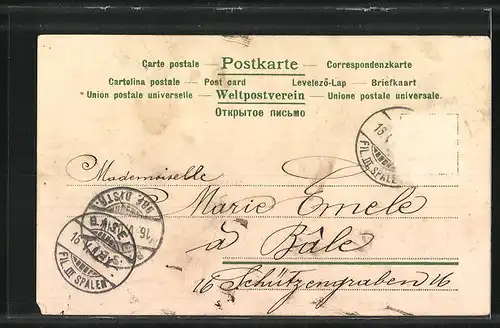 Carte postale — Postkarte — Correspondenzkarte
Cartolina postale — Post card Levelező-Lap — Briefkaart
Union postale universelle — Weltpostverein — Unione postale universale.
Открытое письмо
16
FIL. III SPALEN
Mademoiselle
Marie Emele
à Bâle
16 Schützengraben 16
16
FIL. III SPALEN